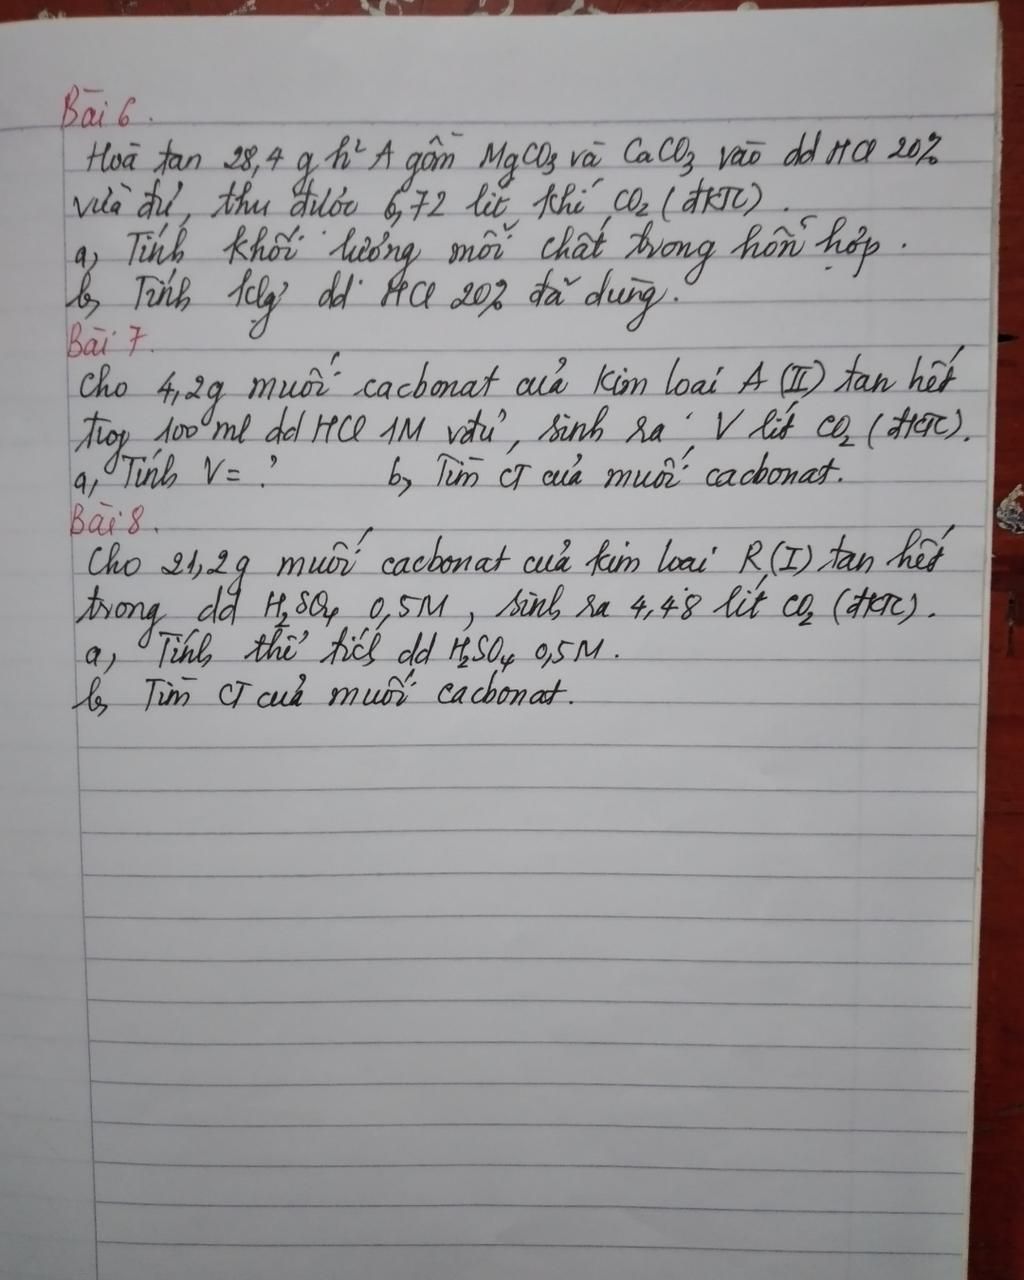 Bài 6.
Hoà tan 28,4 g h² A gồm MgCO₃ và CaCO₃ vào dd HCl 20%
vừa đủ, thu được 6,72 lít khí CO₂ (đktc).
a, Tính khối lượng mỗi chất trong hỗn hợp.
b, Tính klg dd HCl 20% đã dùng.
Bài 7.
Cho 4,2g muối cacbonat của kim loại A (II) tan hết
trog 100 ml dd HCl 1M vđủ, sinh ra V lít CO₂ (đktc).
a, Tính V = ? b, Tìm CT của muối cacbonat.
Bài 8.
Cho 21,2g muối cacbonat của kim loại R(I) tan hết
trong dd H₂SO₄ 0,5M, sinh ra 4,48 lít CO₂ (đktc).
a, Tính thể tích dd H₂SO₄ 0,5M.
b, Tìm CT của muối cacbonat.